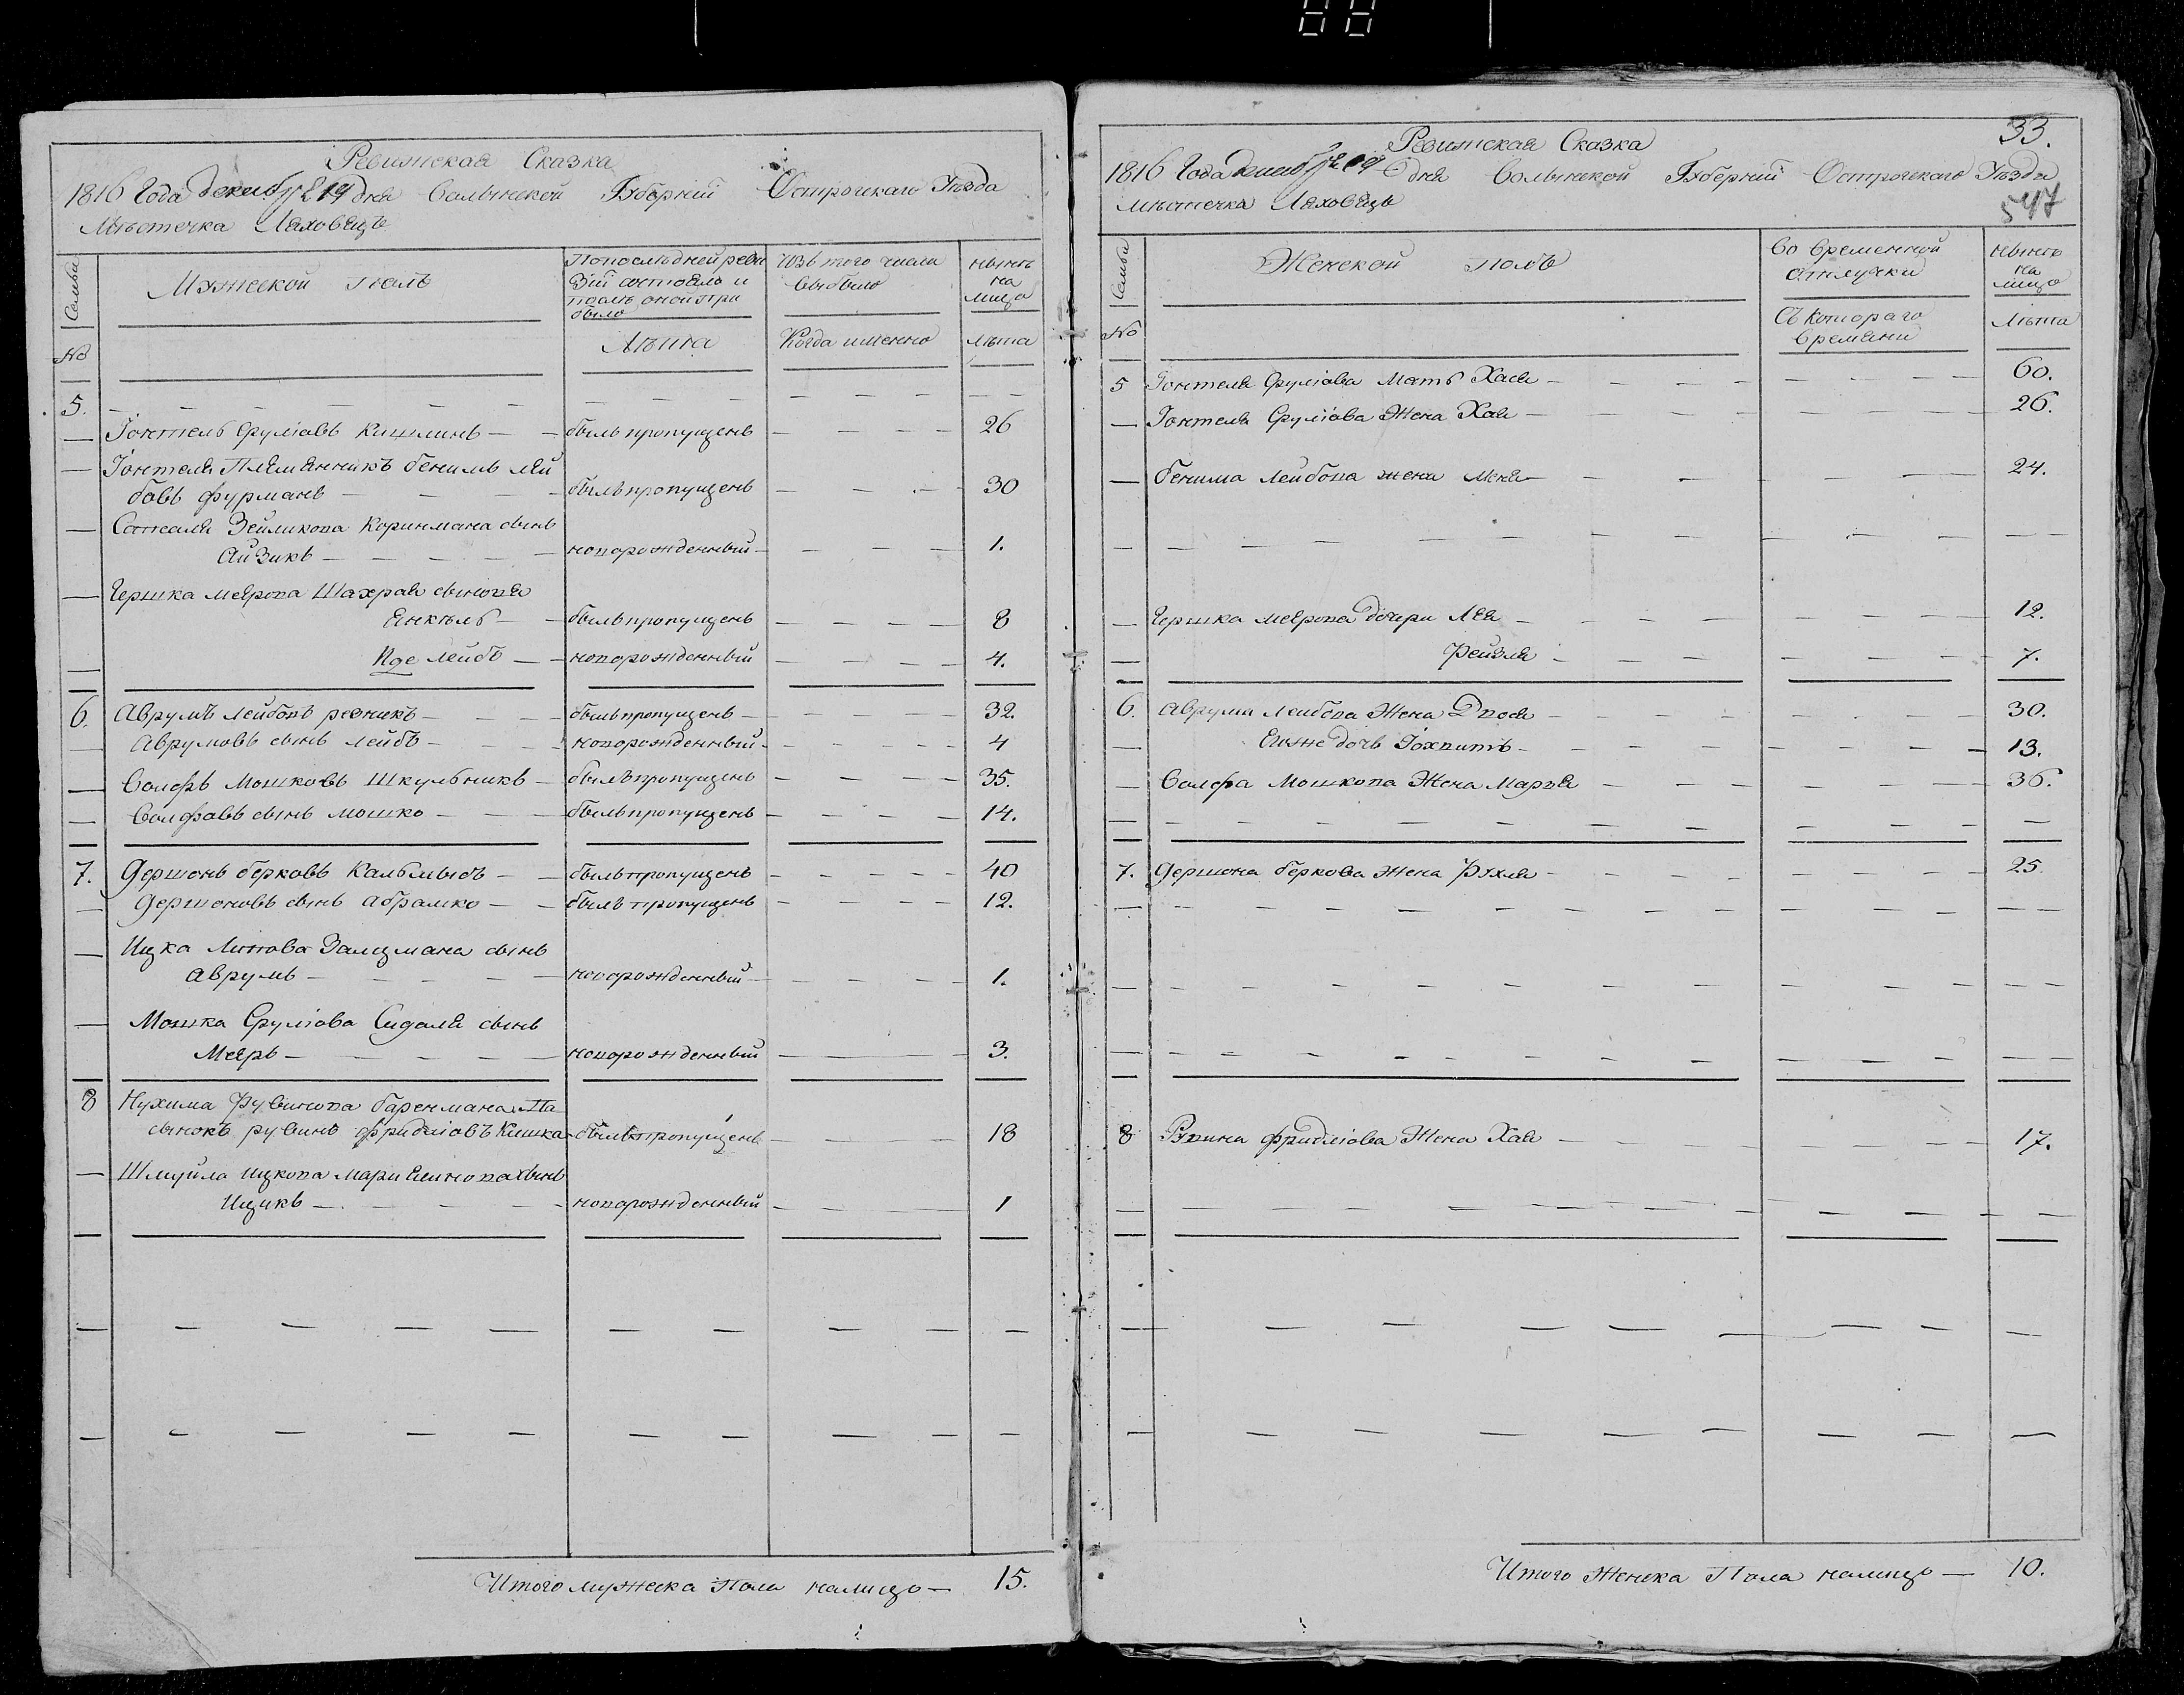 Ревижская Сказка
1816 Года декаб 19 дня Волынской Губерній Острожскаго Уезда
Местечка Ляховецъ
Семьи
№
Мужеской полъ
По последней реви
зіи состояло и
после оной при
было
Лѣта
Изъ того числа
выбыло
Когда именно
Нынѣ
на
лицо
Лѣта
5.
Іонтель Сруліовъ Кишлинъ был пропущенъ 26
Іонтеля Племянникъ Бенимъ Лей
бовъ Фурманъ былъ пропущенъ 30
Зейликова Коринмана сынъ
Айзикъ новорожденный 1.
Гершка Меерова Шахрая сыновья
Янкель былъ пропущенъ 8
Иде Лейбъ новорожденный 4.
6. Аврумъ Лейбовъ резникъ былъ пропущенъ 32.
Аврумовъ сынъ Лейбъ новорожденный 4
Волфъ Мошковъ Шкульникъ былъ пропущенъ 35.
Волфовъ сынъ Мошко былъ пропущенъ 14.
7. Гершонъ Берковъ былъ пропущенъ 40
Гершоновъ сынъ Абрамко былъ пропущенъ 12.
Ицка Залцмана сынъ
Аврумъ новорожденный 1.
Мошка Сруліова Сидаля сынъ
Меерь новорожденный 3.
8 Нухима Рувинова Баренмана Па
сынокъ рувинъ Фридиловъ Кишка былъ пропущенъ 18
Шмуйла Ицкова сынъ
Ицикъ новорожденный 1
Итого мужеска Пола налицо 15.
33.
Ревижская Сказка
1816 Года дня Волынской Губерній Острожскаго Уѣзда
Местечка Ляховецъ
547
Семьи
№
Женской полъ
Во временной
отлучки
Съ котораго
времяни
Нынѣ
на
лицо
Лѣта
5 Іонтеля Сруліова Мать Хася 60.
Іонтеля Сруліова Жена Хая 26.
Бенима Лейбова жена 24.
Гершка Меерова дочери Лея 12.
Рейзля 7.
6. Аврума Лейбова Жена Двося 30.
Ейже дочь 13.
Волфа Мошкова Жена Маръя 36.
7. Гершона Беркова Жена Рухля 25
8 Рувина Фридліова Жена Хая 17.
Итого Женска Пола налицо 10.